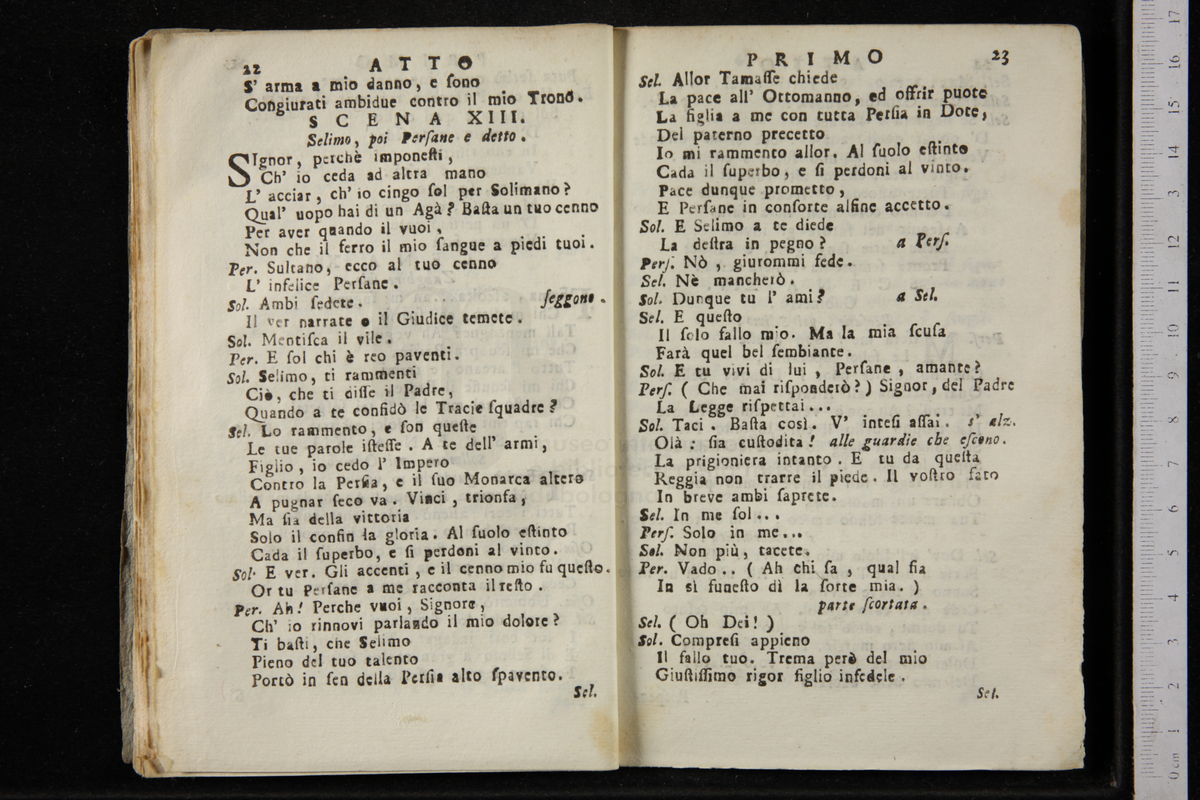 22 ATTO
S' arma a mio danno, e sono
Congiurati ambidue contro il mio Trono.
SCENA XIII.
Selimo, poi Persane e detto.
SIgnor, perchè imponesti,
Ch' io ceda ad altra mano
L' acciar, ch' io cingo sol per Solimano?
Qual' uopo hai di un Agà? Basta un tuo cenno
Per aver quando il vuoi,
Non che il ferro il mio sangue a piedi tuoi.
Per. Sultano, ecco al tuo cenno
L' infelice Persane.
Sol. Ambi sedete. seggono.
Il ver narrate o il Giudice temete.
Sol. Mentisca il vile.
Per. E sol chi è reo paventi.
Sol. Selimo, ti rammenti
Ciò, che ti disse il Padre,
Quando a te confidò le Tracie squadre?
Sel. Lo rammento, e son queste
Le tue parole istesse. A te dell' armi,
Figlio, io cedo l' Impero
Contro la Persia, e il suo Monarca altero
A pugnar seco va. Vinci, trionfa,
Ma sia della vittoria
Solo il confin la gloria. Al suolo estinto
Cada il superbo, e si perdoni al vinto.
Sol. E ver. Gli accenti, e il cenno mio fu questo.
Or tu Persane a me racconta il resto.
Per. Ah! Perche vuoi, Signore,
Ch' io rinnovi parlando il mio dolore?
Ti basti, che Selimo
Pieno del tuo talento
Portò in sen della Persia alto spavento.
Sel.
PRIMO 23
Sel. Allor Tamasse chiede
La pace all' Ottomanno, ed offrir puote
La figlia a me con tutta Persia in Dote,
Del paterno precetto
Io mi rammento allor. Al suolo estinto
Cada il superbo, e si perdoni al vinto.
Pace dunque prometto,
E Persane in consorte alfine accetto.
Sol. E Selimo a te diede
La destra in pegno? a Pers.
Pers. Nò, giurommi fede.
Sel. Nè mancherò.
Sol. Dunque tu l' ami? a Sel.
Sel. E questo
Il solo fallo mio. Ma la mia scusa
Farà quel bel sembiante.
Sol. E tu vivi di lui, Persane, amante?
Pers. (Che mai risponderò?) Signor, del Padre
La Legge rispettai...
Sol. Taci. Basta così. V' intesi assai. s' alz.
Olà: sia custodita! alle guardie che escono.
La prigioniera intanto. E tu da questa
Reggia non trarre il piede. Il vostro fato
In breve ambi saprete.
Sel. In me sol...
Pers. Solo in me...
Sol. Non più, tacete.
Per. Vado.. (Ah chi sa, qual sia
In sì funesto dì la sorte mia.)
parte scortata.
Sel. (Oh Dei!)
Sol. Compresi appieno
Il fallo tuo. Trema però del mio
Giustissimo rigor figlio infedele.
Sel.